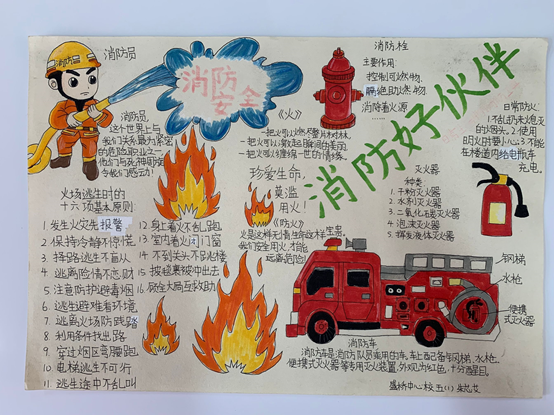 消防员
消防员
消防
安全
消防员,
这个世界上与
我们关系最为紧密
的危险职业之一。
他们与死神周旋
令我们感动!
火场逃生时的
十六项基本原则:
1 发生火灾先报警
2 保持冷静不惊慌
3 择路逃生不盲从
4 逃离险情不恋财
5 注意防护避毒烟
6 逃生避难看环境
7 逃离火场防践踏
8 利用条件找出路
9 穿过烟区弯腰跑
10 电梯逃生不可行
11 逃生途中不乱叫
12 身上着火不乱跑
13 室内着火闭门窗
14 不到关头不跳楼
15 披毯裹被冲出去
16 顾全大局互救助
《火》
一把火可以燃尽整片树林
一把火可以激起瞬间的美丽
一把火可以缠绵一世的情缘。
珍爱生命,
莫滥
用火!
《防火》
火是这样无情
我们安全用火,才能
远离危险!
消防栓
主要作用
控制可燃物、
隔绝助燃物、
消除着火源
……
消防好伙伴
日常防火:
1 不乱扔未熄灭
的烟头。2 使用
明火时要小心 3 不能
在楼道内给电瓶车
充电。
灭火器
种类
1 干粉灭火器
2 水剂灭火器
3 二氧化碳灭火器
4 泡沫灭火器
5 挥发液体灭火器
钢梯
水枪
便携
式灭火器
消防车
消防车是消防队员乘用的车,车上配备有钢梯、水枪、
便携式灭火器等专用灭火装置,外观为红色,十分醒目。
中心校 五(1)